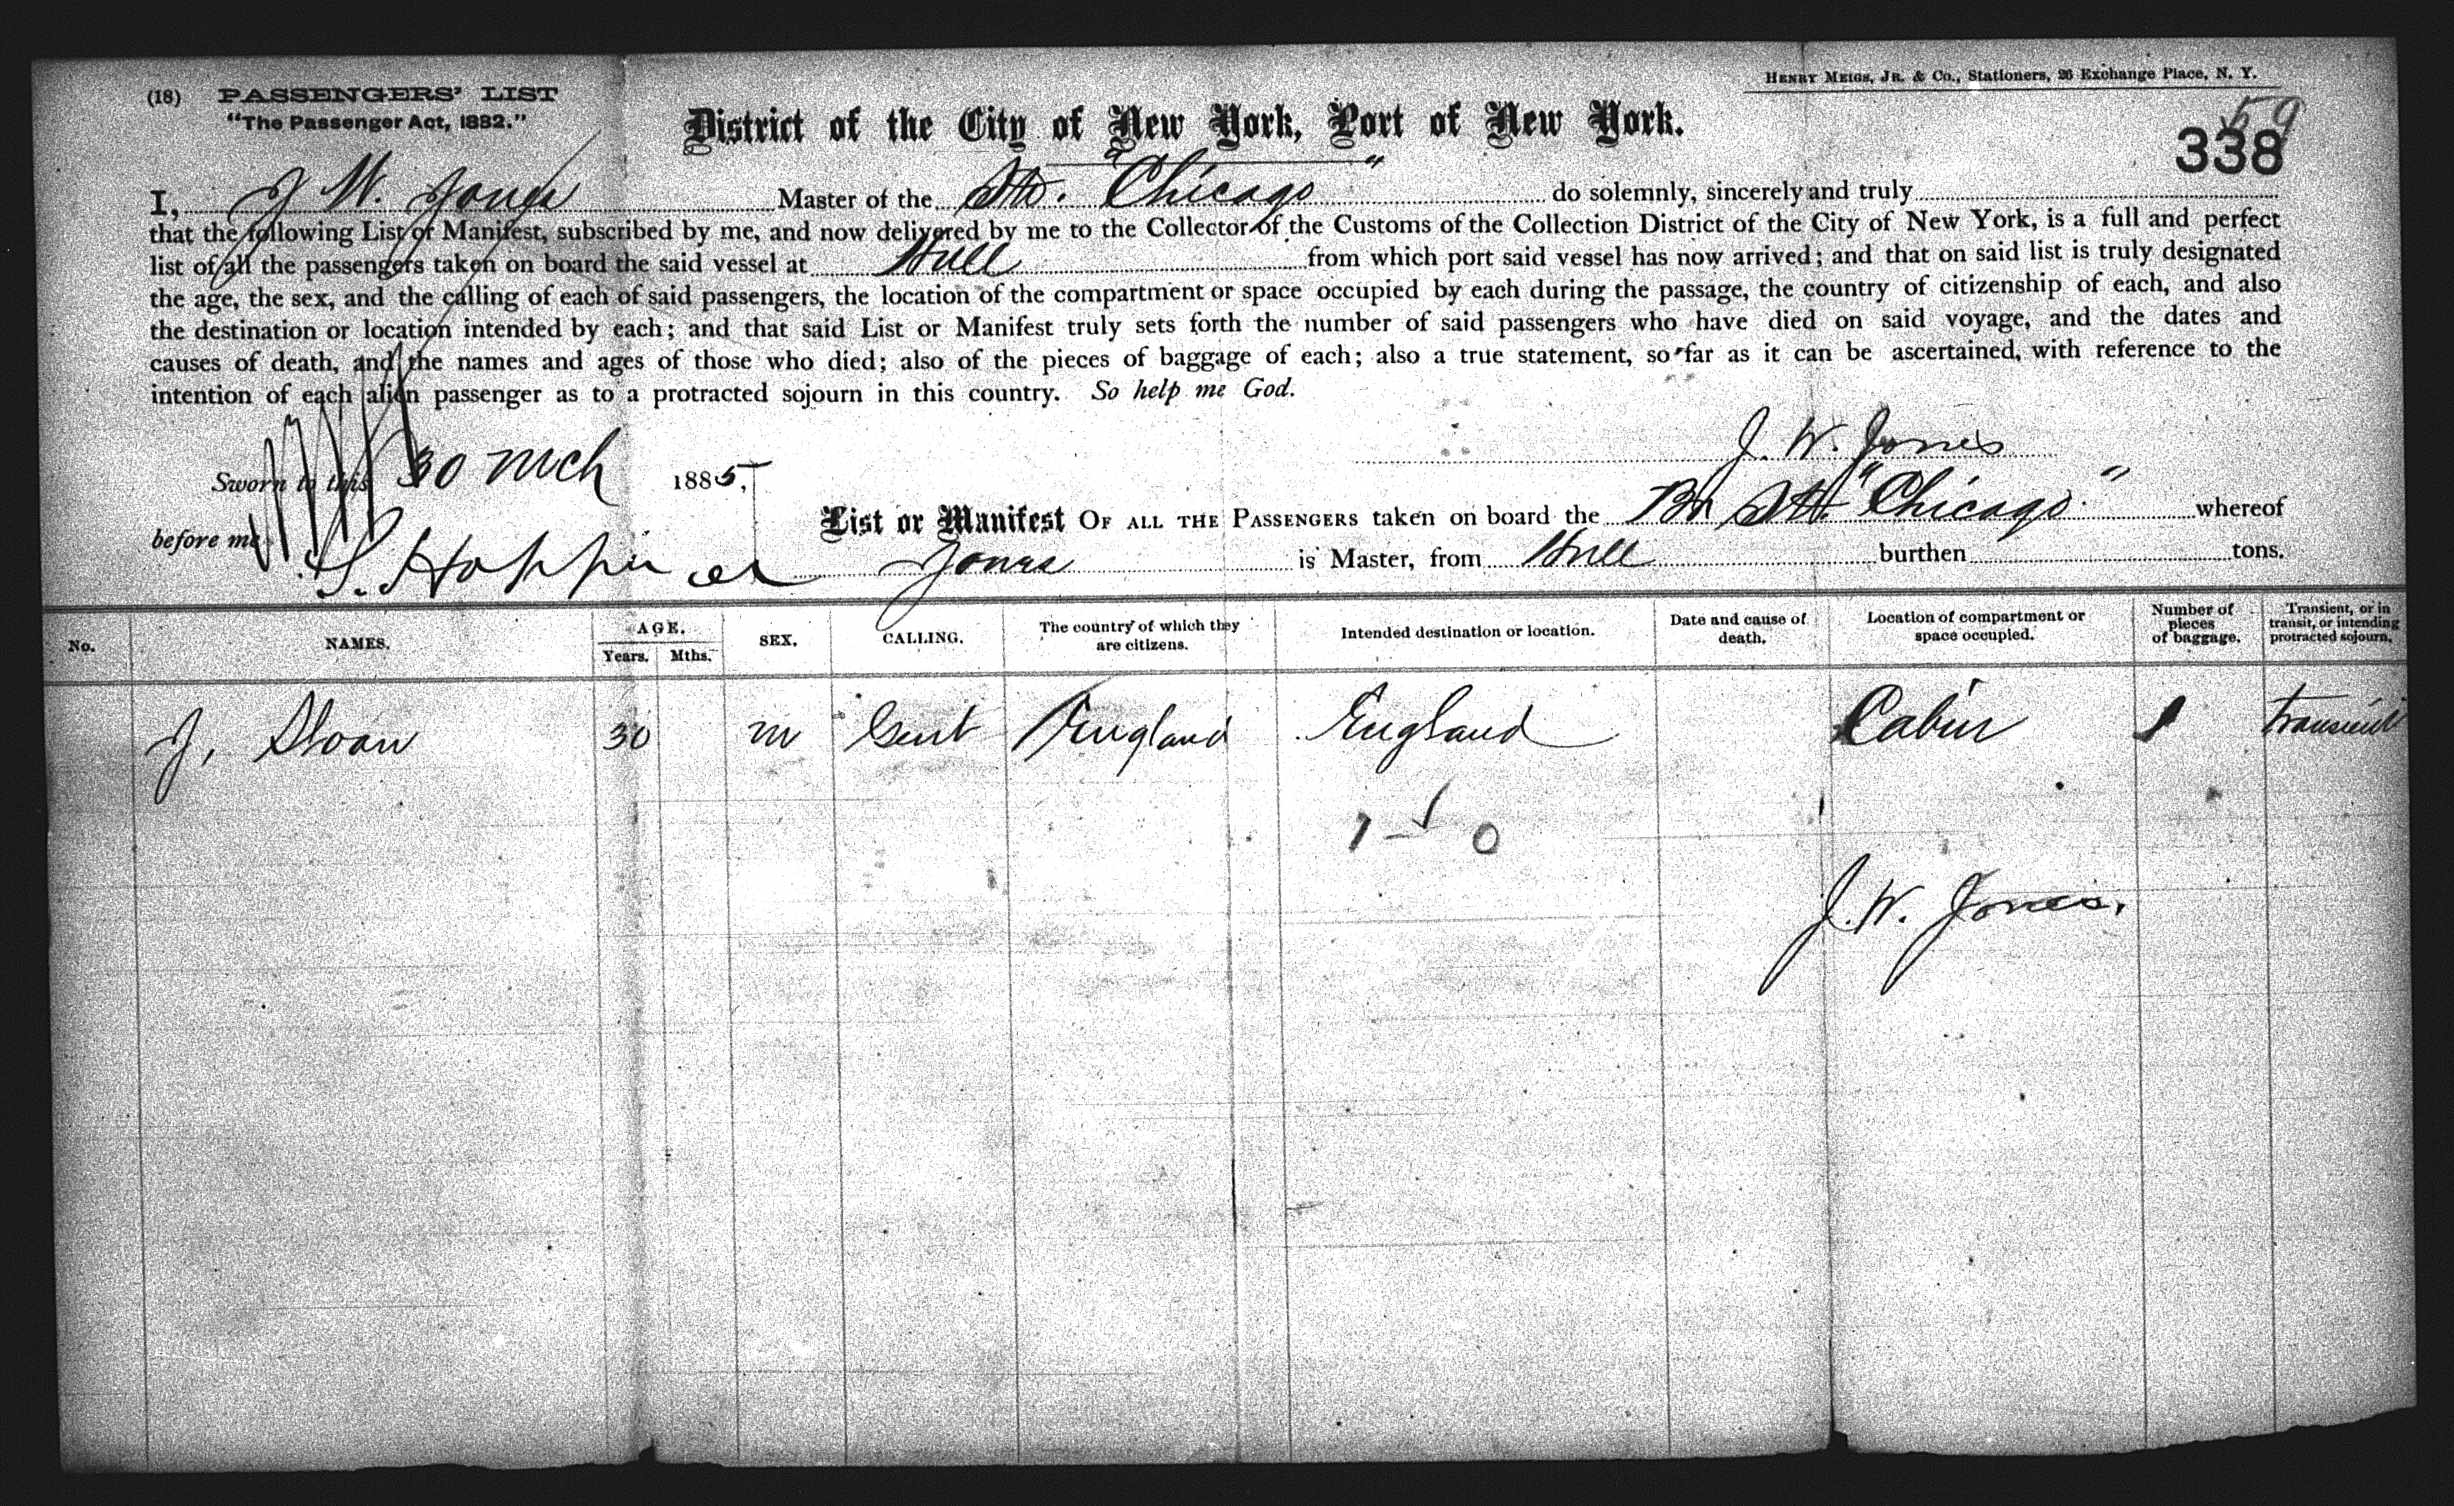 (18) PASSENGERS' LIST
"The Passenger Act, 1882."
HENRY MEIGS, JR. & CO., Stationers, 26 Exchange Place, N. Y.
District of the City of New York, Port of New York.
59
338
I, J W. Jones Master of the Str. "Chicago" do solemnly, sincerely and truly
that the following List or Manifest, subscribed by me, and now delivered by me to the Collector of the Customs of the Collection District of the City of New York, is a full and perfect
list of all the passengers taken on board the said vessel at Hull from which port said vessel has now arrived; and that on said list is truly designated
the age, the sex, and the calling of each of said passengers, the location of the compartment or space occupied by each during the passage, the country of citizenship of each, and also
the destination or location intended by each; and that said List or Manifest truly sets forth the number of said passengers who have died on said voyage, and the dates and
causes of death, and the names and ages of those who died; also of the pieces of baggage of each; also a true statement, so far as it can be ascertained, with reference to the
intention of each alien passenger as to a protracted sojourn in this country. So help me God.
J. W. Jones
Sworn to this 30 Mch 1885,
before me
List or Manifest OF ALL THE PASSENGERS taken on board the Br Str "Chicago" whereof
Jones is Master, from Hull burthen tons.
No. NAMES. AGE. Years. Mths. SEX. CALLING. The country of which they are citizens. Intended destination or location. Date and cause of death. Location of compartment or space occupied. Number of pieces of baggage. Transient, or in transit, or intending protracted sojourn.
J. Sloan 30 m Gent England England Cabin 1 Transient
1 - 0
J. W. Jones.